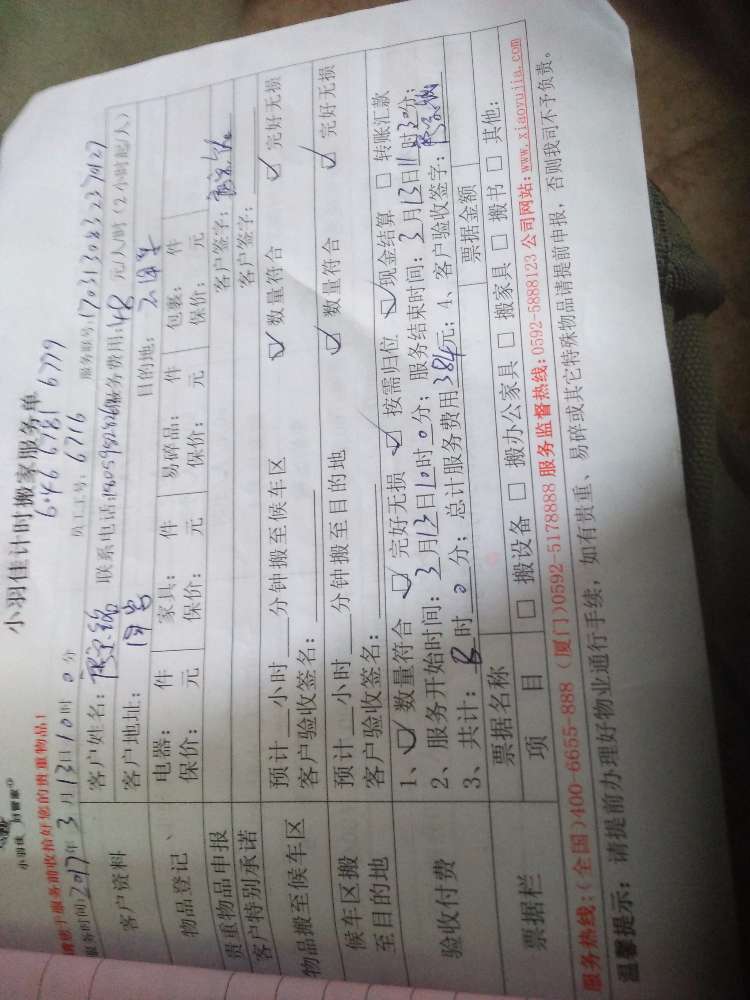 小羽佳计时搬家服务单
小羽佳 好管家
6746 6781 6779
请您于服务前收拾好您的贵重物品！
服务时间：2017年3月13日10时0分 员工工号：6716 服务单号：17031308323
客户资料 客户姓名： 联系电话： 服务费用：48元/人/时（2小时起/人）
客户地址： 目的地：
物品登记 电器： 件 家具： 件 易碎品： 件 包裹： 件
保价： 元 保价： 元 保价： 元 保价： 元
贵重物品申报 客户签字：
客户特别承诺 客户签字：
物品搬至候车区 预计 小时 分钟搬至候车区 ☑ 数量符合 ☑ 完好无损
客户验收签名：
候车区搬至目的地 预计 小时 分钟搬至目的地 ☑ 数量符合 ☑ 完好无损
客户验收签名：
验收付费 1、☑ 数量符合 ☑ 完好无损 ☑ 按需归位 ☑ 现金结算 □ 转账汇款
2、服务开始时间：3月13日10时0分；服务结束时间：3月13日11时30分；
3、共计：8时0分；总计服务费用384元；4、客户验收签字：
票据栏 票据名称 票据金额
项目 □ 搬设备 □ 搬办公家具 □ 搬家具 □ 搬书 □ 其他：
服务热线：（全国）400-6655-888 （厦门）0592-5178888 服务监督热线：0592-5888123 公司网站：www.xiaoyujia.com
温馨提示：请提前办理好物业通行手续，如有贵重、易碎或其它特殊物品请提前申报，否则我司不予负责。